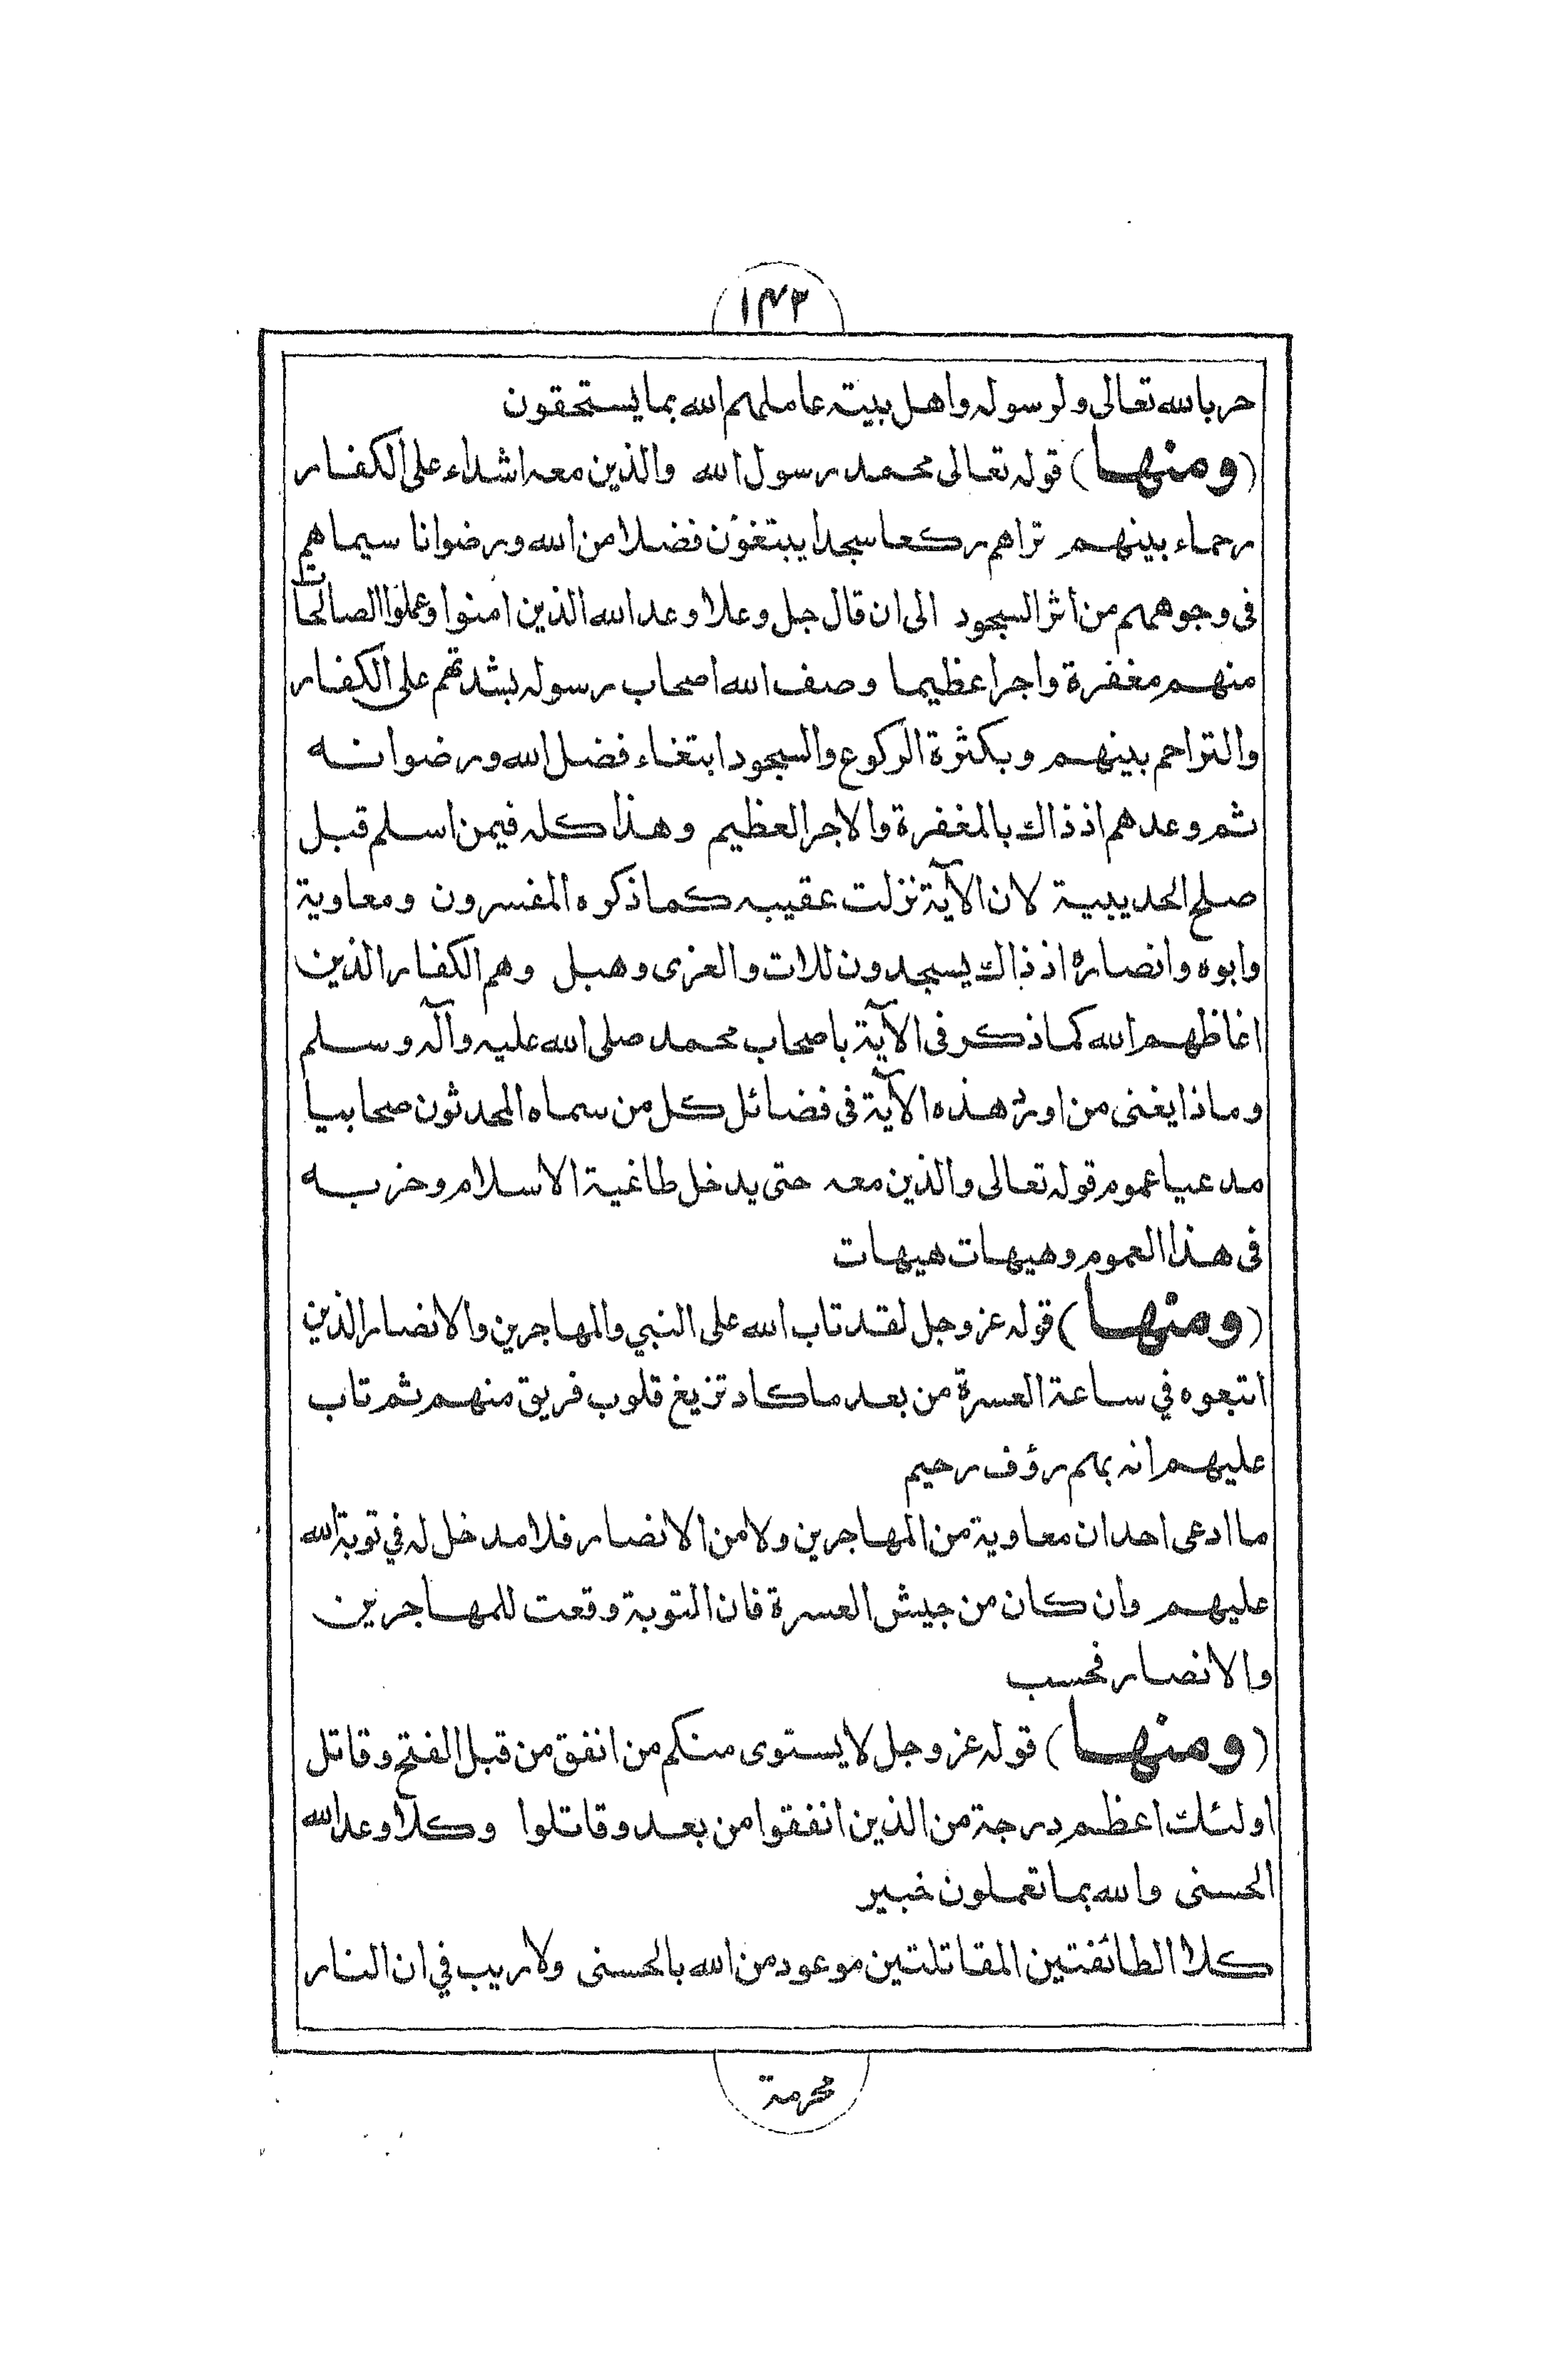 ١٤٢
حربا لله تعالى ولرسوله واهل بيته عاملهم الله بما يستحقون
(ومنها) قوله تعالى محمد رسول الله والذين معه اشداء على الكفار
رحماء بينهم تراهم ركعا سجدا يبتغون فضلا من الله ورضوانا سيماهم
فى وجوههم من أثر السجود الى ان قال جل وعلا وعد الله الذين امنوا وعملوا الصالحات
منهم مغفرة واجرا عظيما وصف الله اصحاب رسوله بشدتهم على الكفار
والتراحم بينهم وبكثرة الركوع والسجود ابتغاء فضل الله ورضوانه
ثم وعدهم اذ ذاك بالمغفرة والاجر العظيم وهذا كله فيمن اسلم قبل
صلح الحديبية لان الآية نزلت عقيبه كما ذكره المفسرون ومعاوية
وابوه وانصاره اذ ذاك يسجدون للات والعزى وهبل وهم الكفار الذين
اغاظهم الله كما ذكر فى الآية باصحاب محمد صلى الله عليه وآله وسلم
وماذا يغنى من اورد هذه الآية فى فضائل كل من سماه المحدثون صحابيا
مدعيا عموم قوله تعالى والذين معه حتى يدخل طاغية الاسلام وحزبه
فى هذا العموم وهيهات هيهات
(ومنها) قوله عز وجل لقد تاب الله على النبي والمهاجرين والانصار الذين
اتبعوه في ساعة العسرة من بعد ما كاد تزيغ قلوب فريق منهم ثم تاب
عليهم انه بهم رؤف رحيم
ما ادعى احد ان معاوية من المهاجرين ولا من الانصار فلا مدخل له في توبة الله
عليهم وان كان من جيش العسرة فان التوبة وقعت للمهاجرين
والانصار فحسب
(ومنها) قوله عز وجل لا يستوى منكم من انفق من قبل الفتح وقاتل
اولئك اعظم درجة من الذين انفقوا من بعد وقاتلوا وكلا وعد الله
الحسنى والله بما تعملون خبير
كلا الطائفتين المقاتلتين موعود من الله بالحسنى ولا ريب في ان النار
محرمة